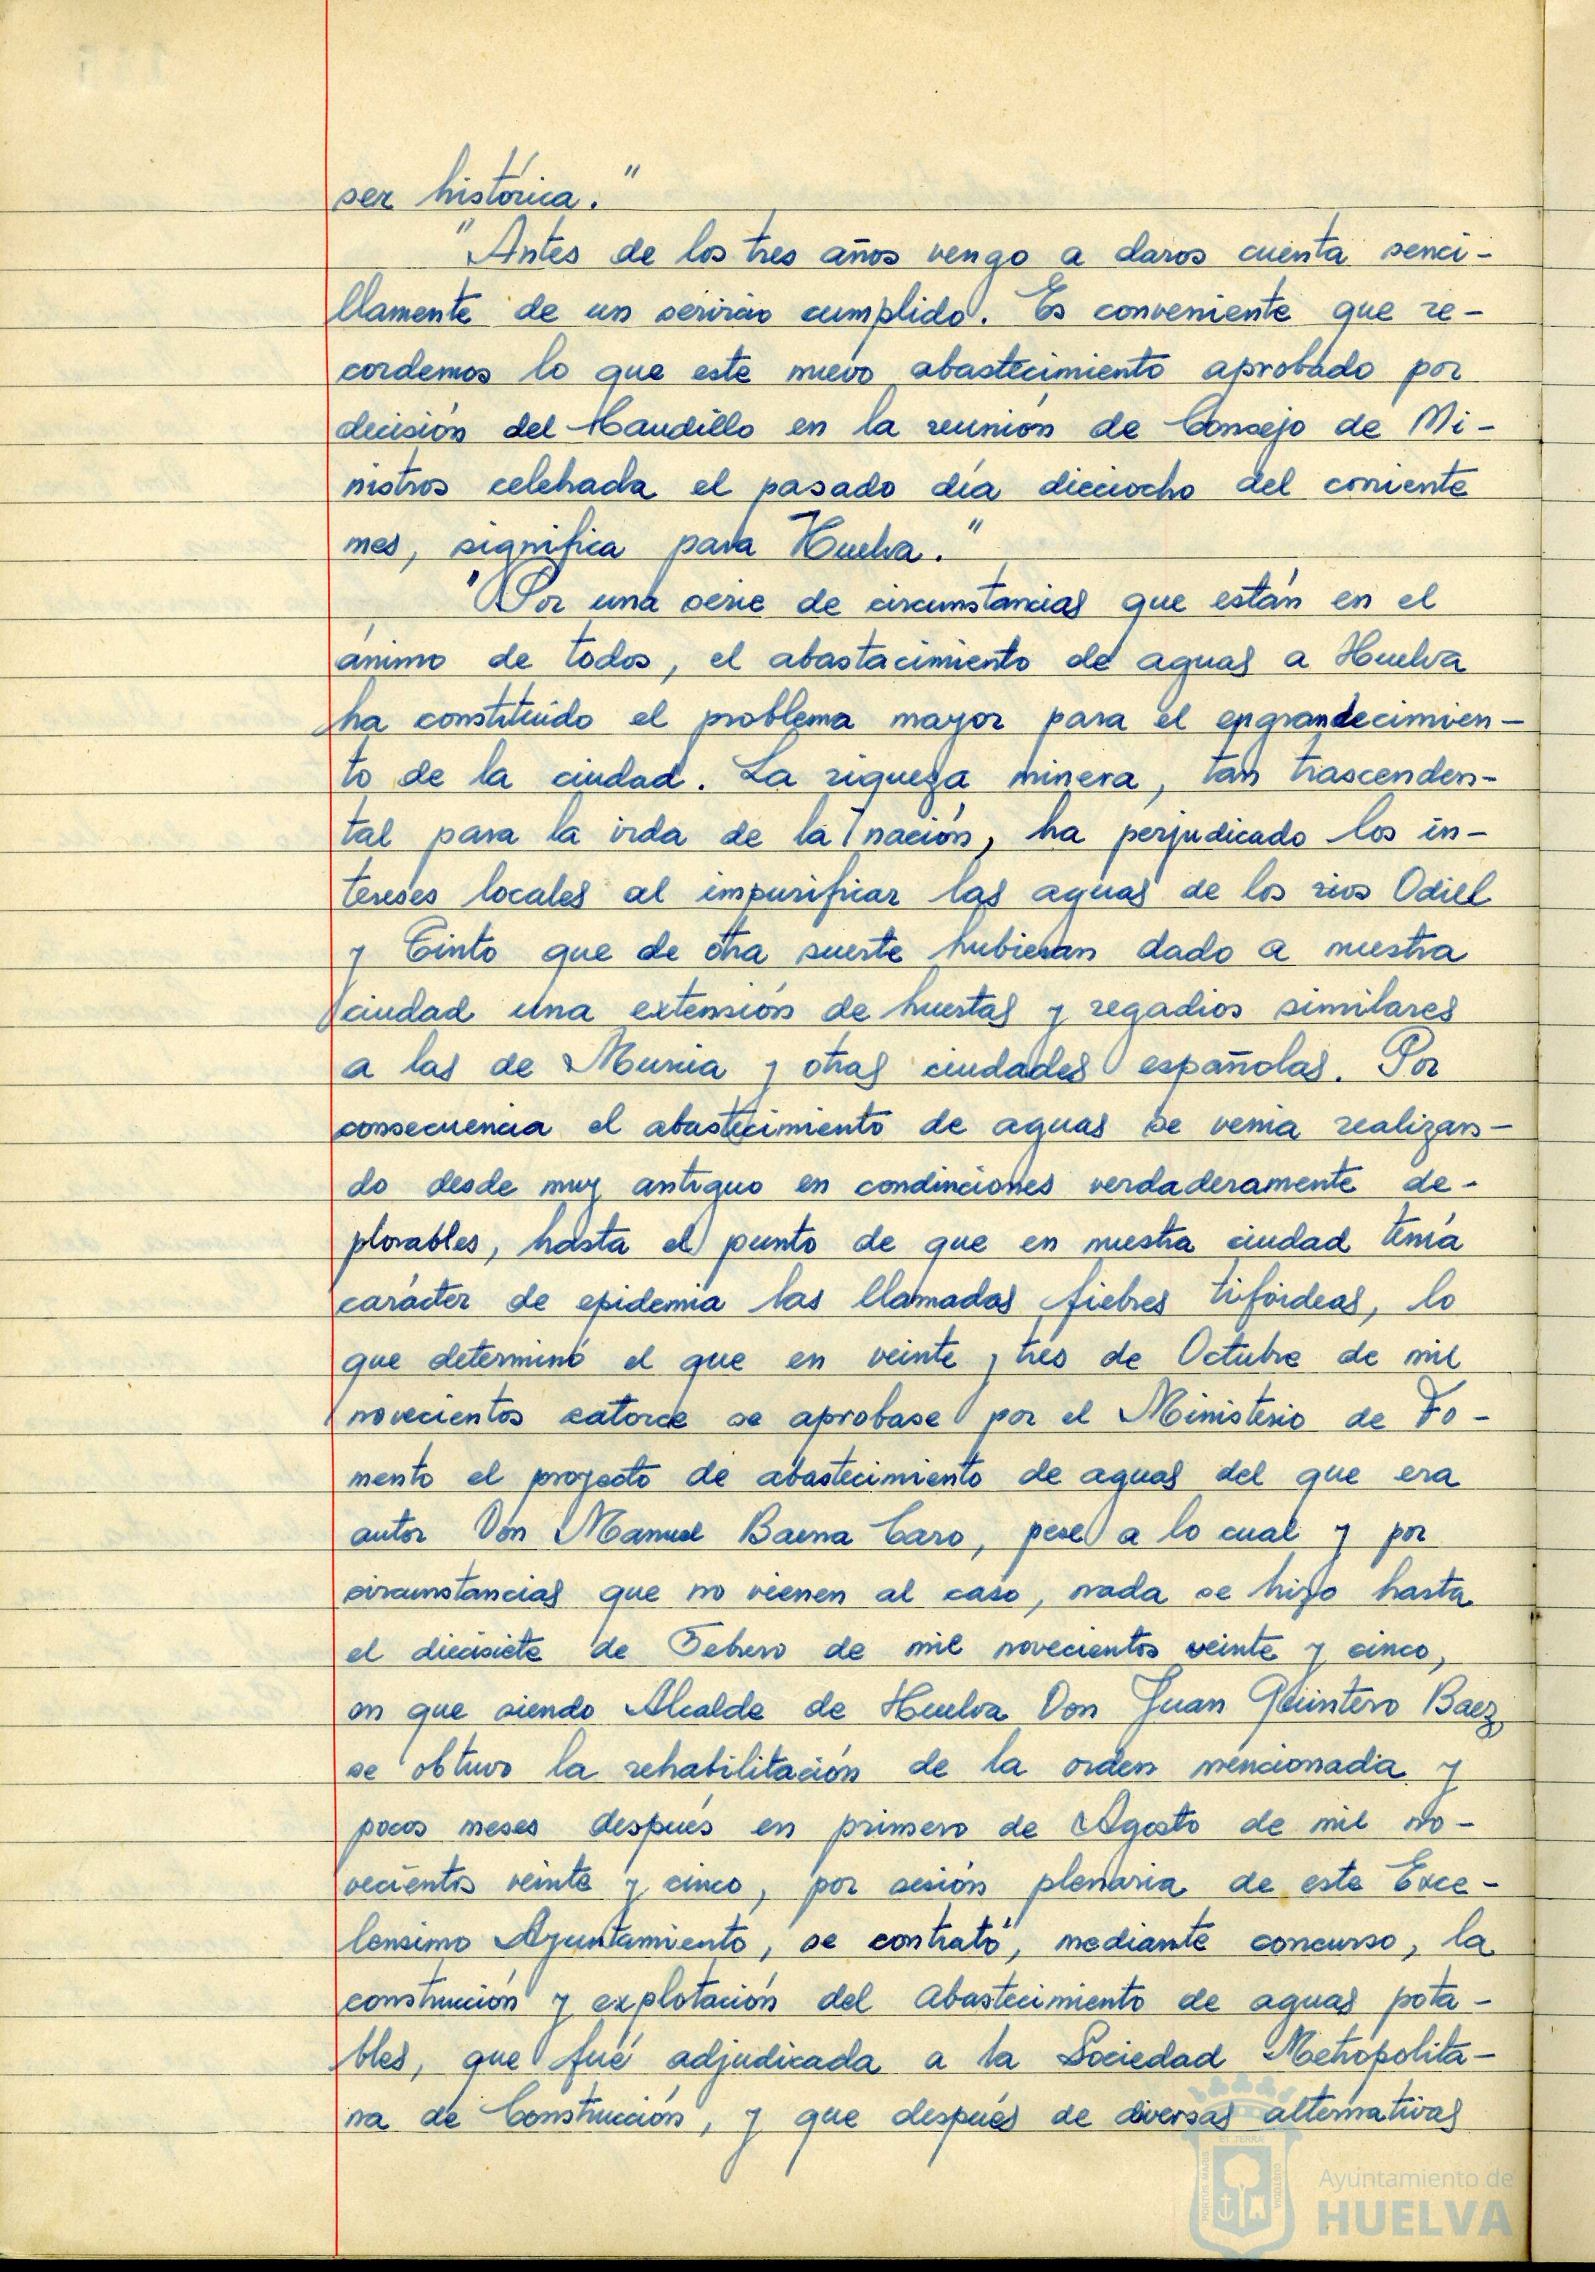 ser histórica."
"Antes de los tres años vengo a daros cuenta senci-
llamente de un servicio cumplido. Es conveniente que re-
cordemos lo que este nuevo abastecimiento aprobado por
decisión del Caudillo en la reunión de Consejo de Mi-
nistros celebrada el pasado día dieciocho del corriente
mes, significa para Huelva."
"Por una serie de circunstancias que están en el
ánimo de todos, el abastacimiento de aguas a Huelva
ha constituído el problema mayor para el engrandecimien-
to de la ciudad. La riqueza minera, tan trascenden-
tal para la vida de la nación, ha perjudicado los in-
tereses locales al impurificar las aguas de los rios Odiel
y Tinto que de otra suerte hubieran dado a nuestra
ciudad una extensión de huertas y regadios similares
a las de Murcia y otras ciudades españolas. Por
consecuencia el abastecimiento de aguas se venia realizan-
do desde muy antiguo en condinciones verdaderamente de-
plorables, hasta el punto de que en nuestra ciudad tenía
carácter de epidemia las llamadas fiebres tifóideas, lo
que determinó el que en veinte y tres de Octubre de mil
novecientos catorce se aprobase por el Ministerio de Fo-
mento el proyecto de abastecimiento de aguas del que era
autor Don Manuel Baena Caro, pese a lo cual y por
circunstancias que no vienen al caso, nada se hizo hasta
el diecisiete de Febrero de mil novecientos veinte y cinco,
en que siendo Alcalde de Huelva Don Juan Quintero Baez,
se obtuvo la rehabilitación de la orden mencionada y
pocos meses después en primero de Agosto de mil no-
vecientos veinte y cinco, por sesión plenaria de este Exce-
lensimo Ayuntamiento, se contrató, mediante concurso, la
construcción y explotación del abastecimiento de aguas pota-
bles, que fué adjudicada a la Sociedad Metropolita-
na de Construcción, y que después de diversas alternativas
PORTUS MARIS
ET TERRÆ
CUSTODIA
Ayuntamiento de
HUELVA